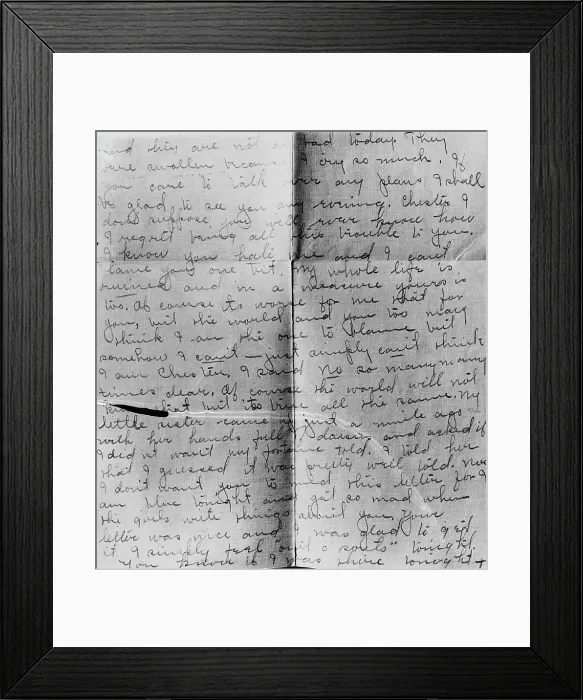 and they are not so bad today. They
were swollen because I cry so much. If
you care to talk over any plans I shall
be glad to see you any evening. Chester I
don't suppose you will ever know how
I regret being all this trouble to you.
I know you hate me and I can't
blame you one bit. My whole life is
ruined and in a measure yours is
too. Of course its worse for me that for
you, but the world and you too may
think I am the one to blame but
somehow I can't – just simply can't think
I am Chester. I said no so many many
times dear. Of course the world will not
know that but it's true all the same. My
little sister came up just a minute ago
with her hands full of daisies and asked if
I didn't want my fortune told. I told her
that I guessed it was pretty well told.
I don't want you to mind this letter for I
am blue tonight and get so mad when
the girls write things about you. Your
letter was nice and I was glad to get
it. I simply feel "out o sorts" tonight.
You know if I was there tonight +